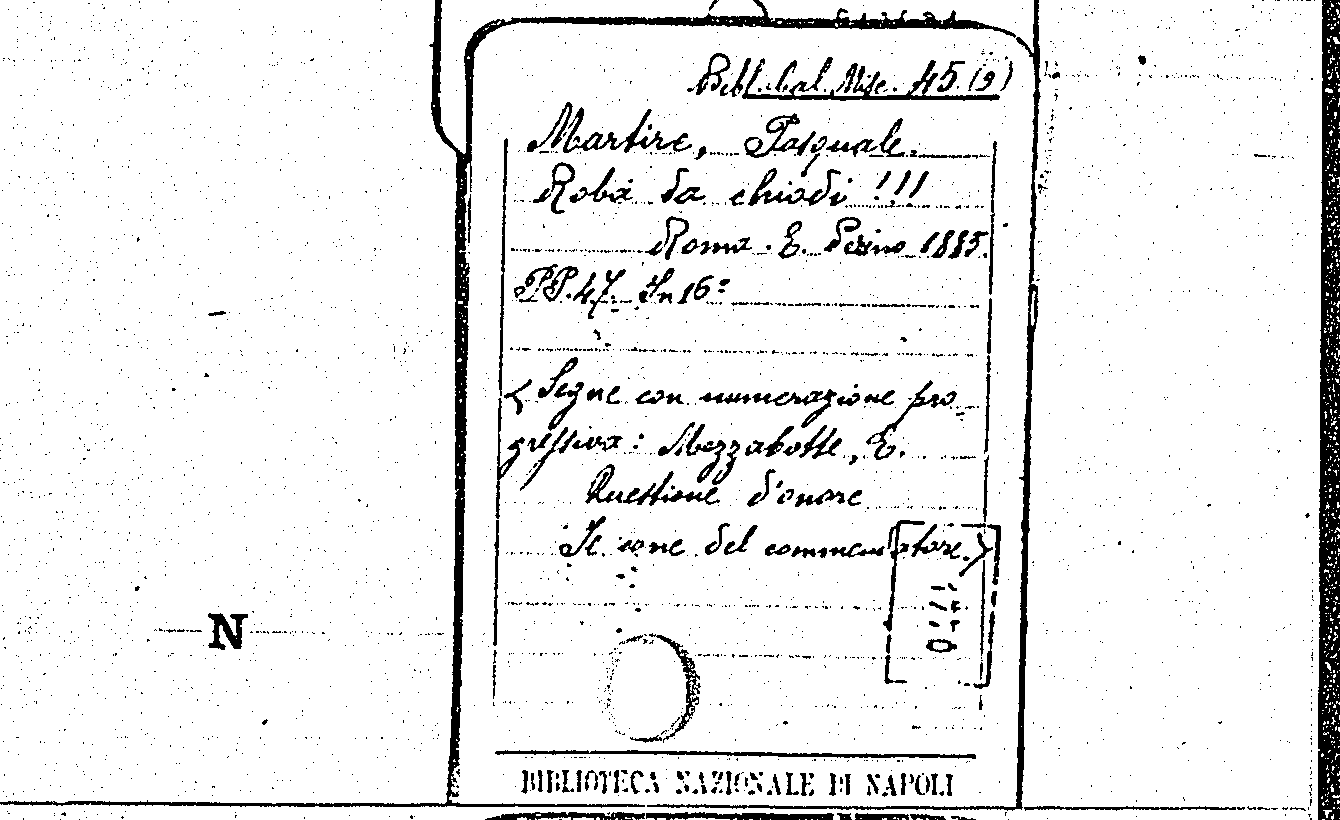 Bibl. Cal. Misc. 45 (9)
Martire, Pasquale.
Roba da chiodi !!!
Roma. E. Perino 1885.
PP. 47. In 16º
(Segue con numerazione pro-
gressiva: Mezzabotte, E.
Questione d'onore
Il cane del commendatore.)
N
BIBLIOTECA NAZIONALE DI NAPOLI